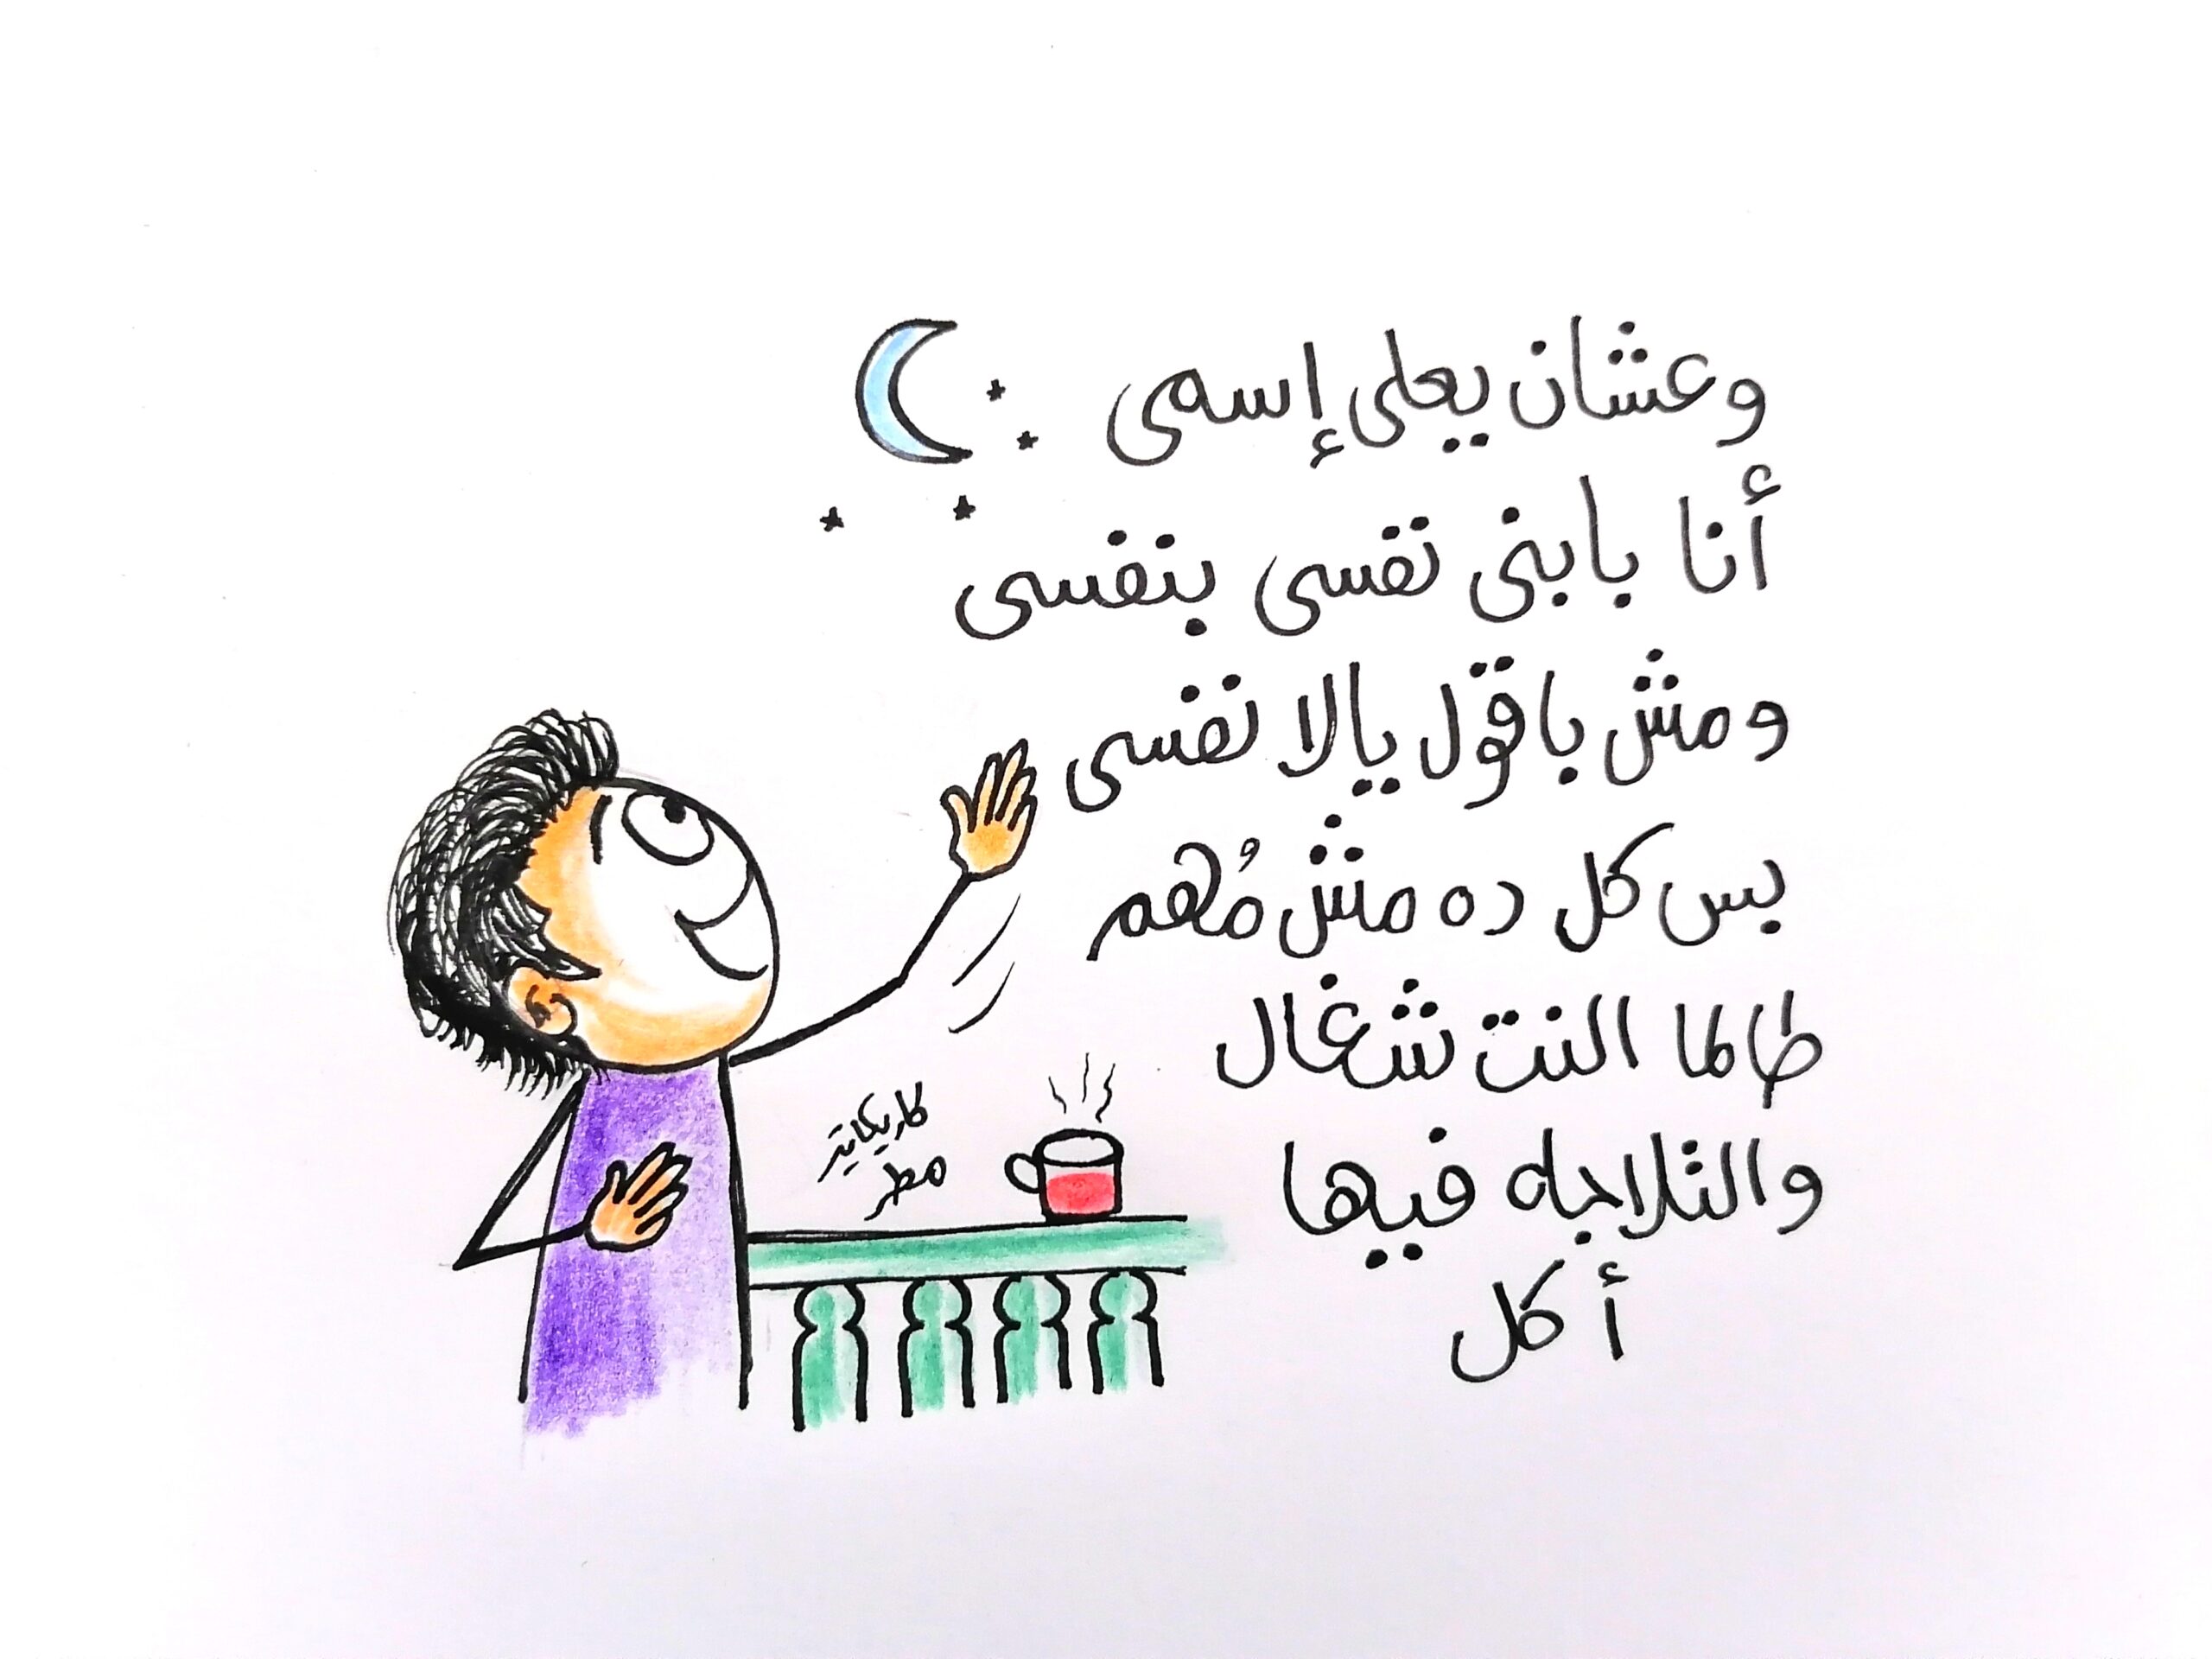 وعشان يعلى إسمى
أنا بابنى نفسى بنفسى
ومش باقول يالا نفسى
بس كل ده مش مُهم
طالما النت شغال
والثلاجه فيها
أكل
كاريكاتير
مطر